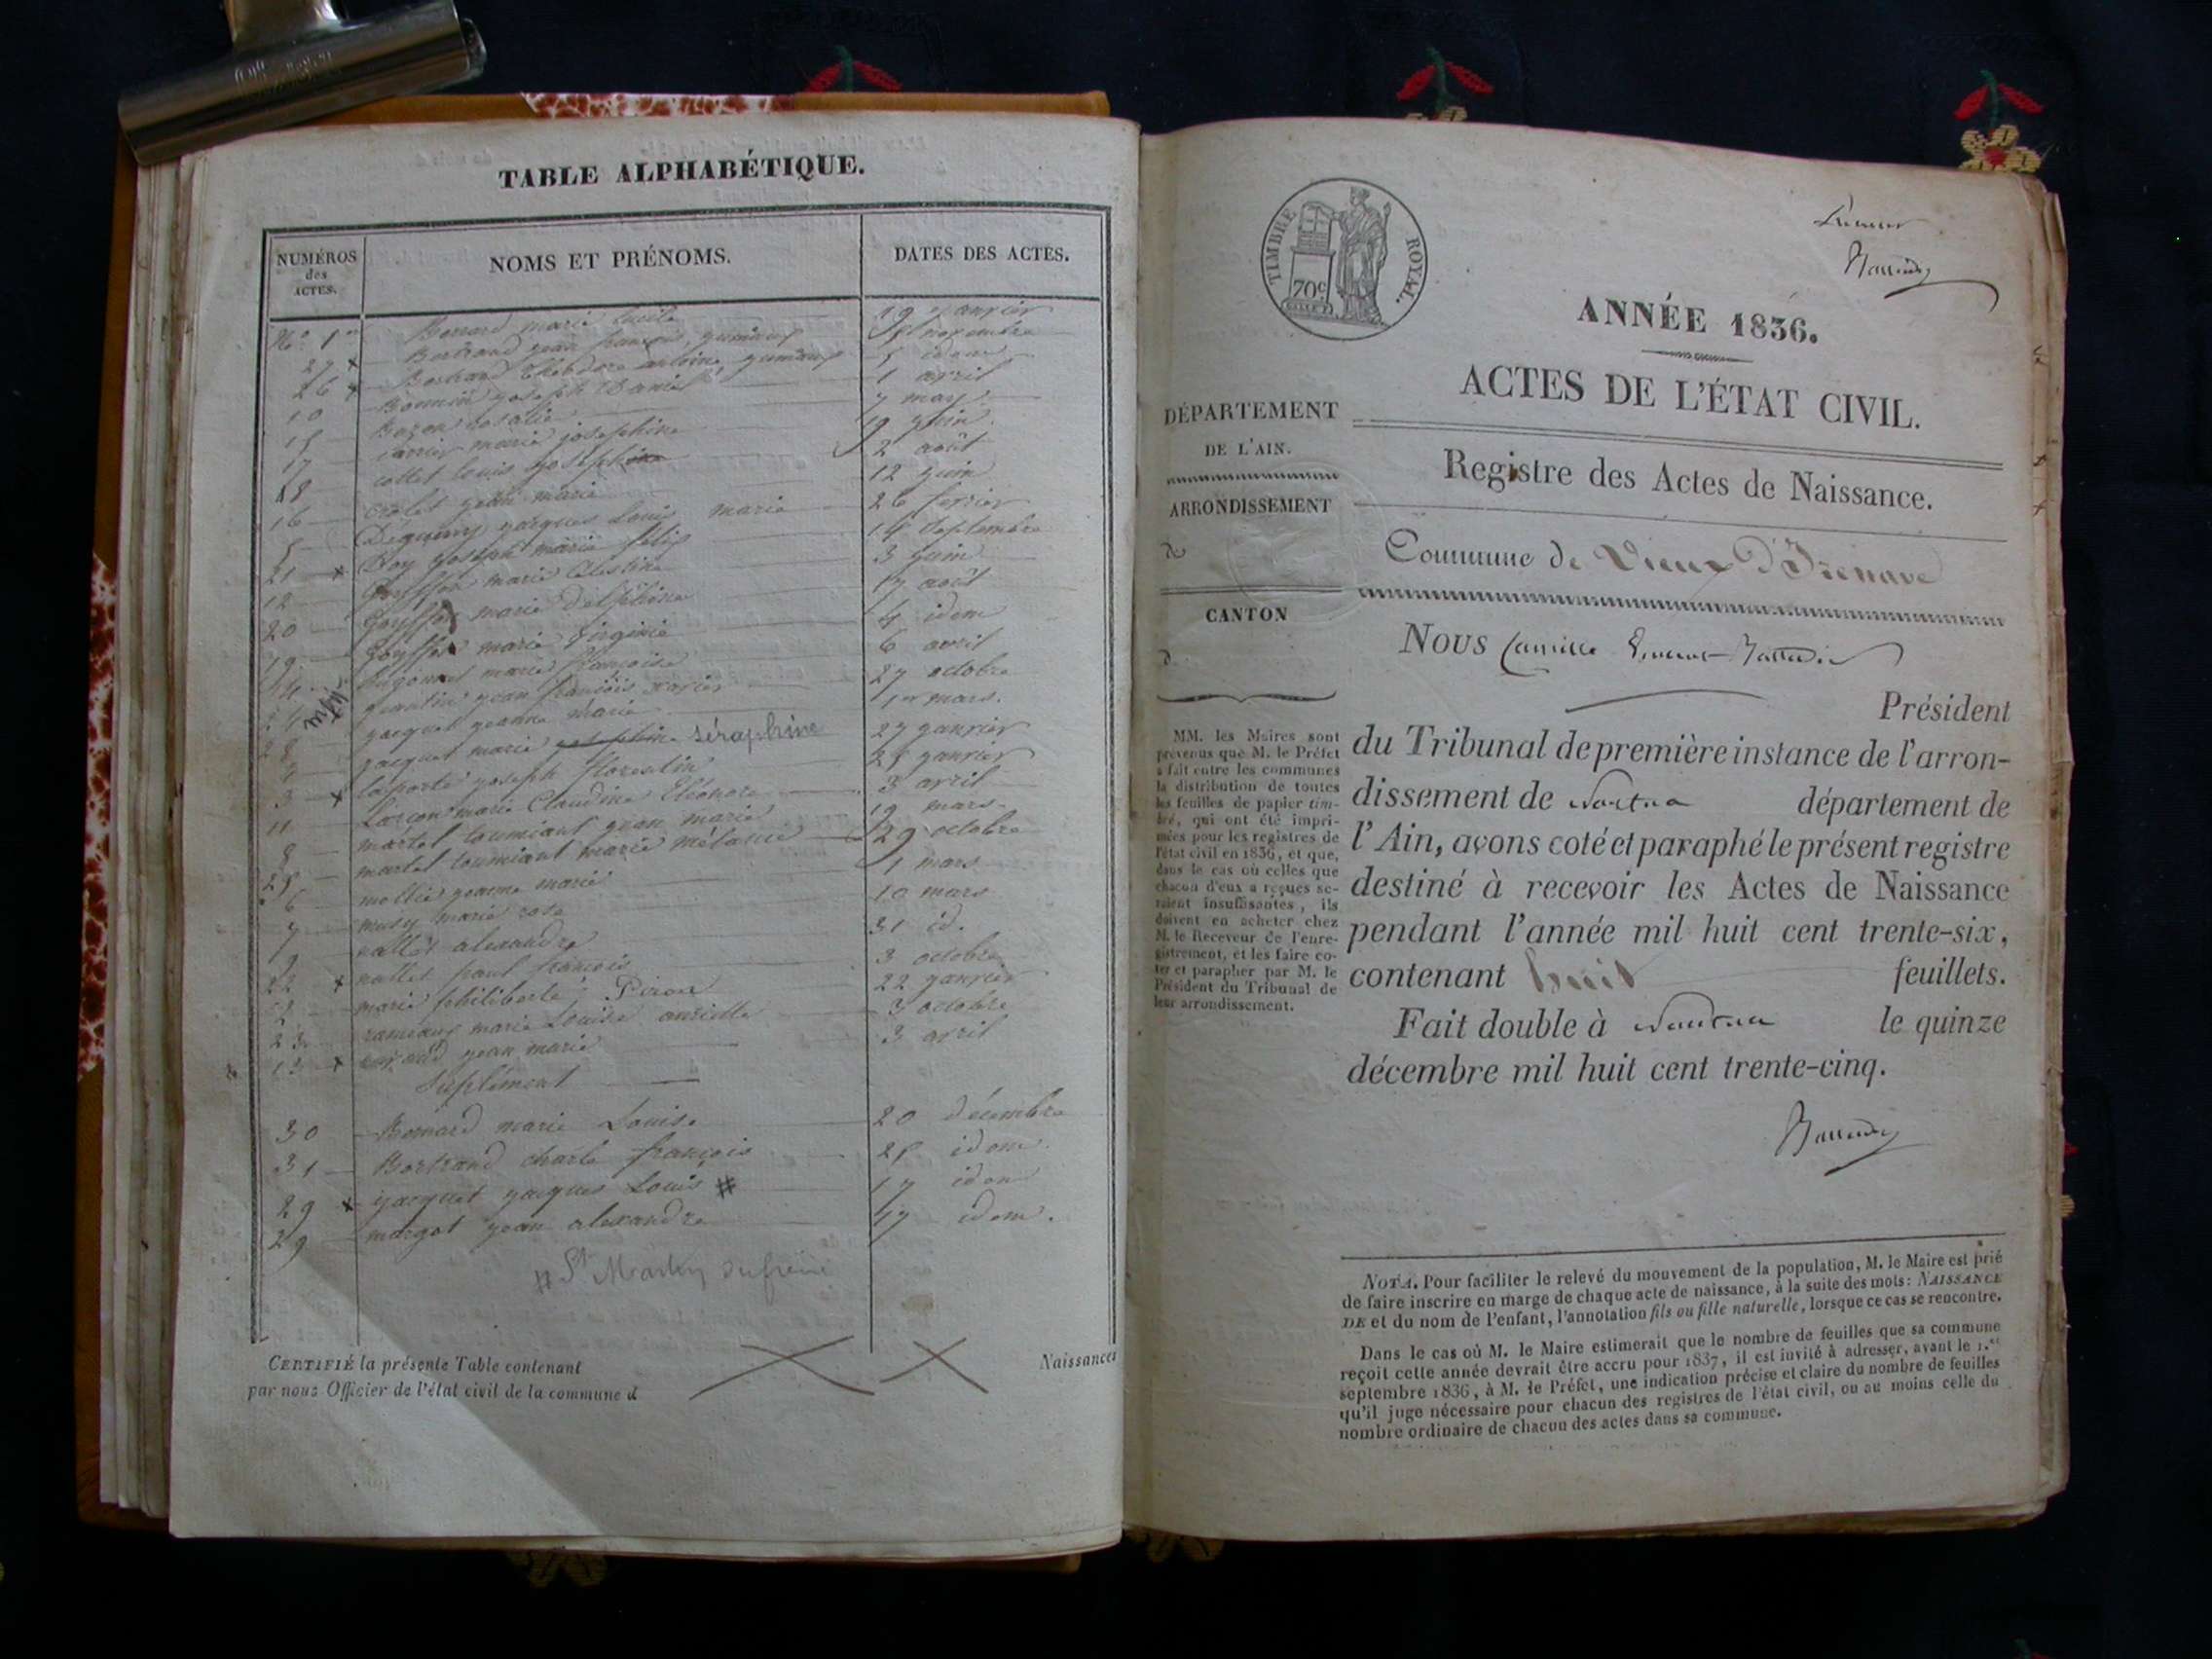 TABLE ALPHABÉTIQUE.
NUMÉROS
des
ACTES.
NOMS ET PRÉNOMS.
DATES DES ACTES.
No. 1er Bernard marie 19 janvier
27 x Bertrand jean françois, jumeaux 5 novembre
26 x Bertrand Théodore antoine, jumeaux 5 idem
10 joseph 1 avril
15 rosalie 7 may
17 marie josephine 19 juin
18 collet louis joseph 2 août
16 jean marie 12 juin
5 jacques Louis marie 26 fevrier
21 x joseph marie félix 14 septembre
12 marie Celestine 3 juin
20 marie delphine 17 août
19 marie virginie 4 idem
14 marie françoise 6 avril
24 jean françois xavier 27 octobre
jacquet jeanne marie 1er mars.
4 jacquet marie josephine séraphine 27 janvier
3 x laporte joseph florentin 25 janvier
11 Larçon marie Claudine Eléonore 3 avril
8 martel toumiant jean marie 19 mars
25 martel toumiant marie mélanie 29 octobre
6 jeanne marie 1 mars
7 marie rose 10 mars
9 alexandre 31 id.
22 x paul françois 3 octobre
2 marie philiberte; Piron 22 janvier
23 rameaux marie Louise 3 octobre
13 x jean marie 3 avril
Suplément
30 Bernard marie Louise 20 décembre
31 Bertrand charle françois 25 idem
29 x jacquet jacques Louis # 17 idem
29 margot jean alexandre 17 idem.
# St
CERTIFIÉ la présente Table contenant Naissances
par nous Officier de l'état civil de la commune d
TIMBRE ROYAL.
70c
ANNÉE 1836.
ACTES DE L'ÉTAT CIVIL.
Registre des Actes de Naissance.
DÉPARTEMENT
DE L'AIN.
ARRONDISSEMENT
de
CANTON
d
Commune de Vieux d'Izenave
NOUS Camille
Président
du Tribunal de première instance de l'arron-
dissement de Nantua département de
l'Ain, avons coté et paraphé le présent registre
destiné à recevoir les Actes de Naissance
pendant l'année mil huit cent trente-six,
contenant huit feuillets.
Fait double à Nantua le quinze
décembre mil huit cent trente-cinq.
MM. les Maires sont
prévenus que M. le Préfet
a fait entre les communes
la distribution de toutes
les feuilles de papier tim-
bré, qui ont été impri-
mées pour les registres de
l'état civil en 1836, et que,
dans le cas où celles que
chacun d'eux a reçues se-
raient insuffisantes, ils
doivent en acheter chez
M. le Receveur de l'enre-
gistrement, et les faire co-
ter et parapher par M. le
Président du Tribunal de
leur arrondissement.
NOTA. Pour faciliter le relevé du mouvement de la population, M. le Maire est prié
de faire inscrire en marge de chaque acte de naissance, à la suite des mots: NAISSANCE
DE et du nom de l'enfant, l'annotation fils ou fille naturelle, lorsque ce cas se rencontre.
Dans le cas où M. le Maire estimerait que le nombre de feuilles que sa commune
reçoit cette année devrait être accru pour 1837, il est invité à adresser, avant le 1.er
septembre 1836, à M. le Préfet, une indication précise et claire du nombre de feuilles
qu'il juge nécessaire pour chacun des registres de l'état civil, ou au moins celle du
nombre ordinaire de chacun des actes dans sa commune.